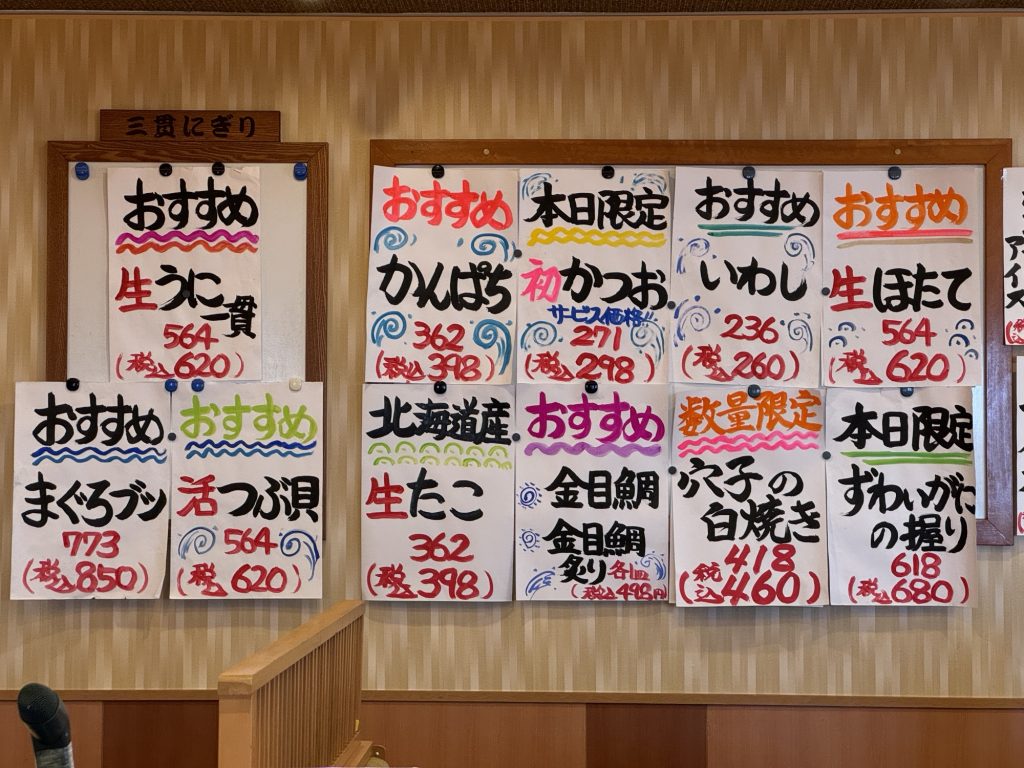 三貫にぎり
おすすめ
生うに
一貫
564
(税込620)
おすすめ
まぐろブツ
773
(税込850)
おすすめ
活つぶ貝
564
(税込620)
おすすめ
かんぱち
362
(税込398)
本日限定
初かつお
サービス価格!!
271
(税込298)
おすすめ
いわし
236
(税込260)
おすすめ
生ほたて
564
(税込620)
北海道産
生たこ
362
(税込398)
おすすめ
金目鯛
金目鯛
炙り各皿
(税込498円)
数量限定
穴子の
白焼き
418
(税込460)
本日限定
ずわいがに
の握り
618
(税込680)
アイス